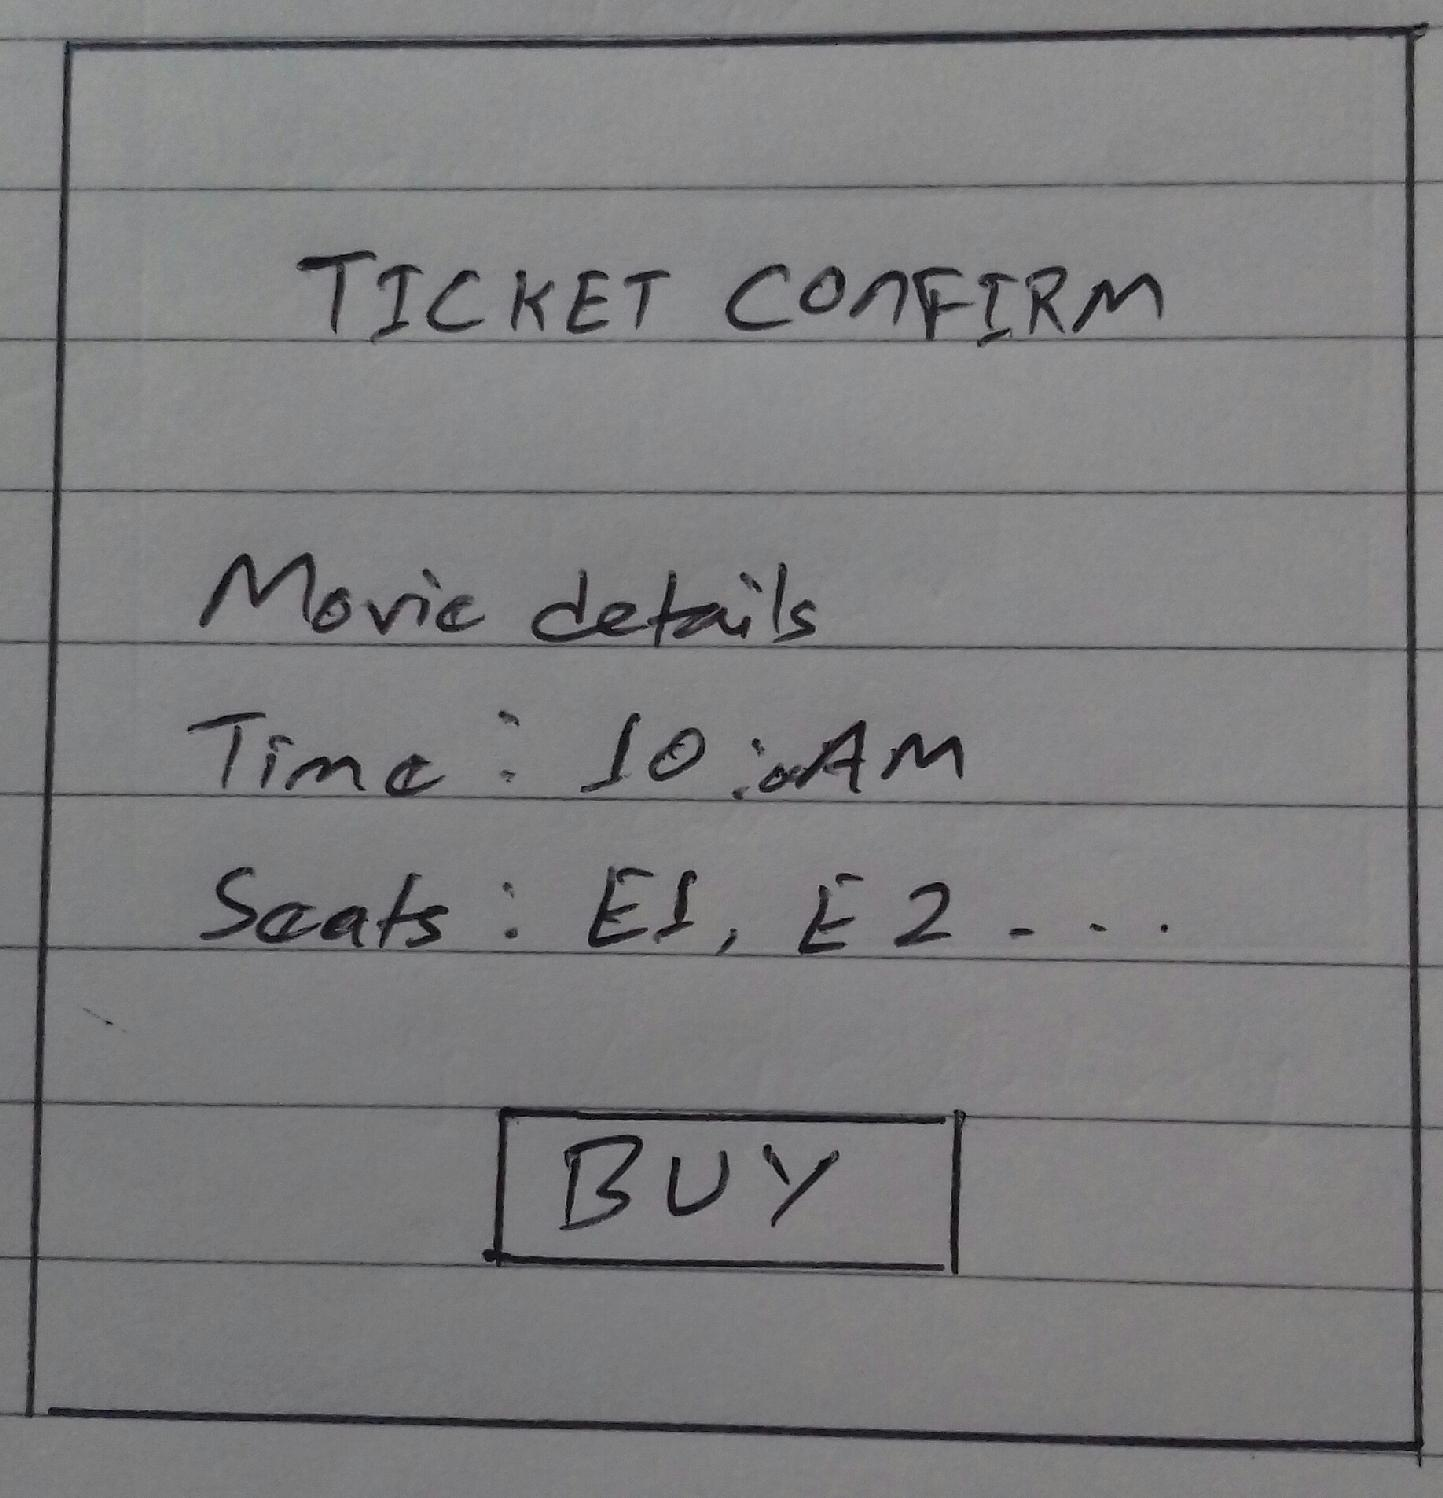 TICKET CONFIRM
Movie details
Time : 10:00AM
Seats : E1, E2 ....
BUY